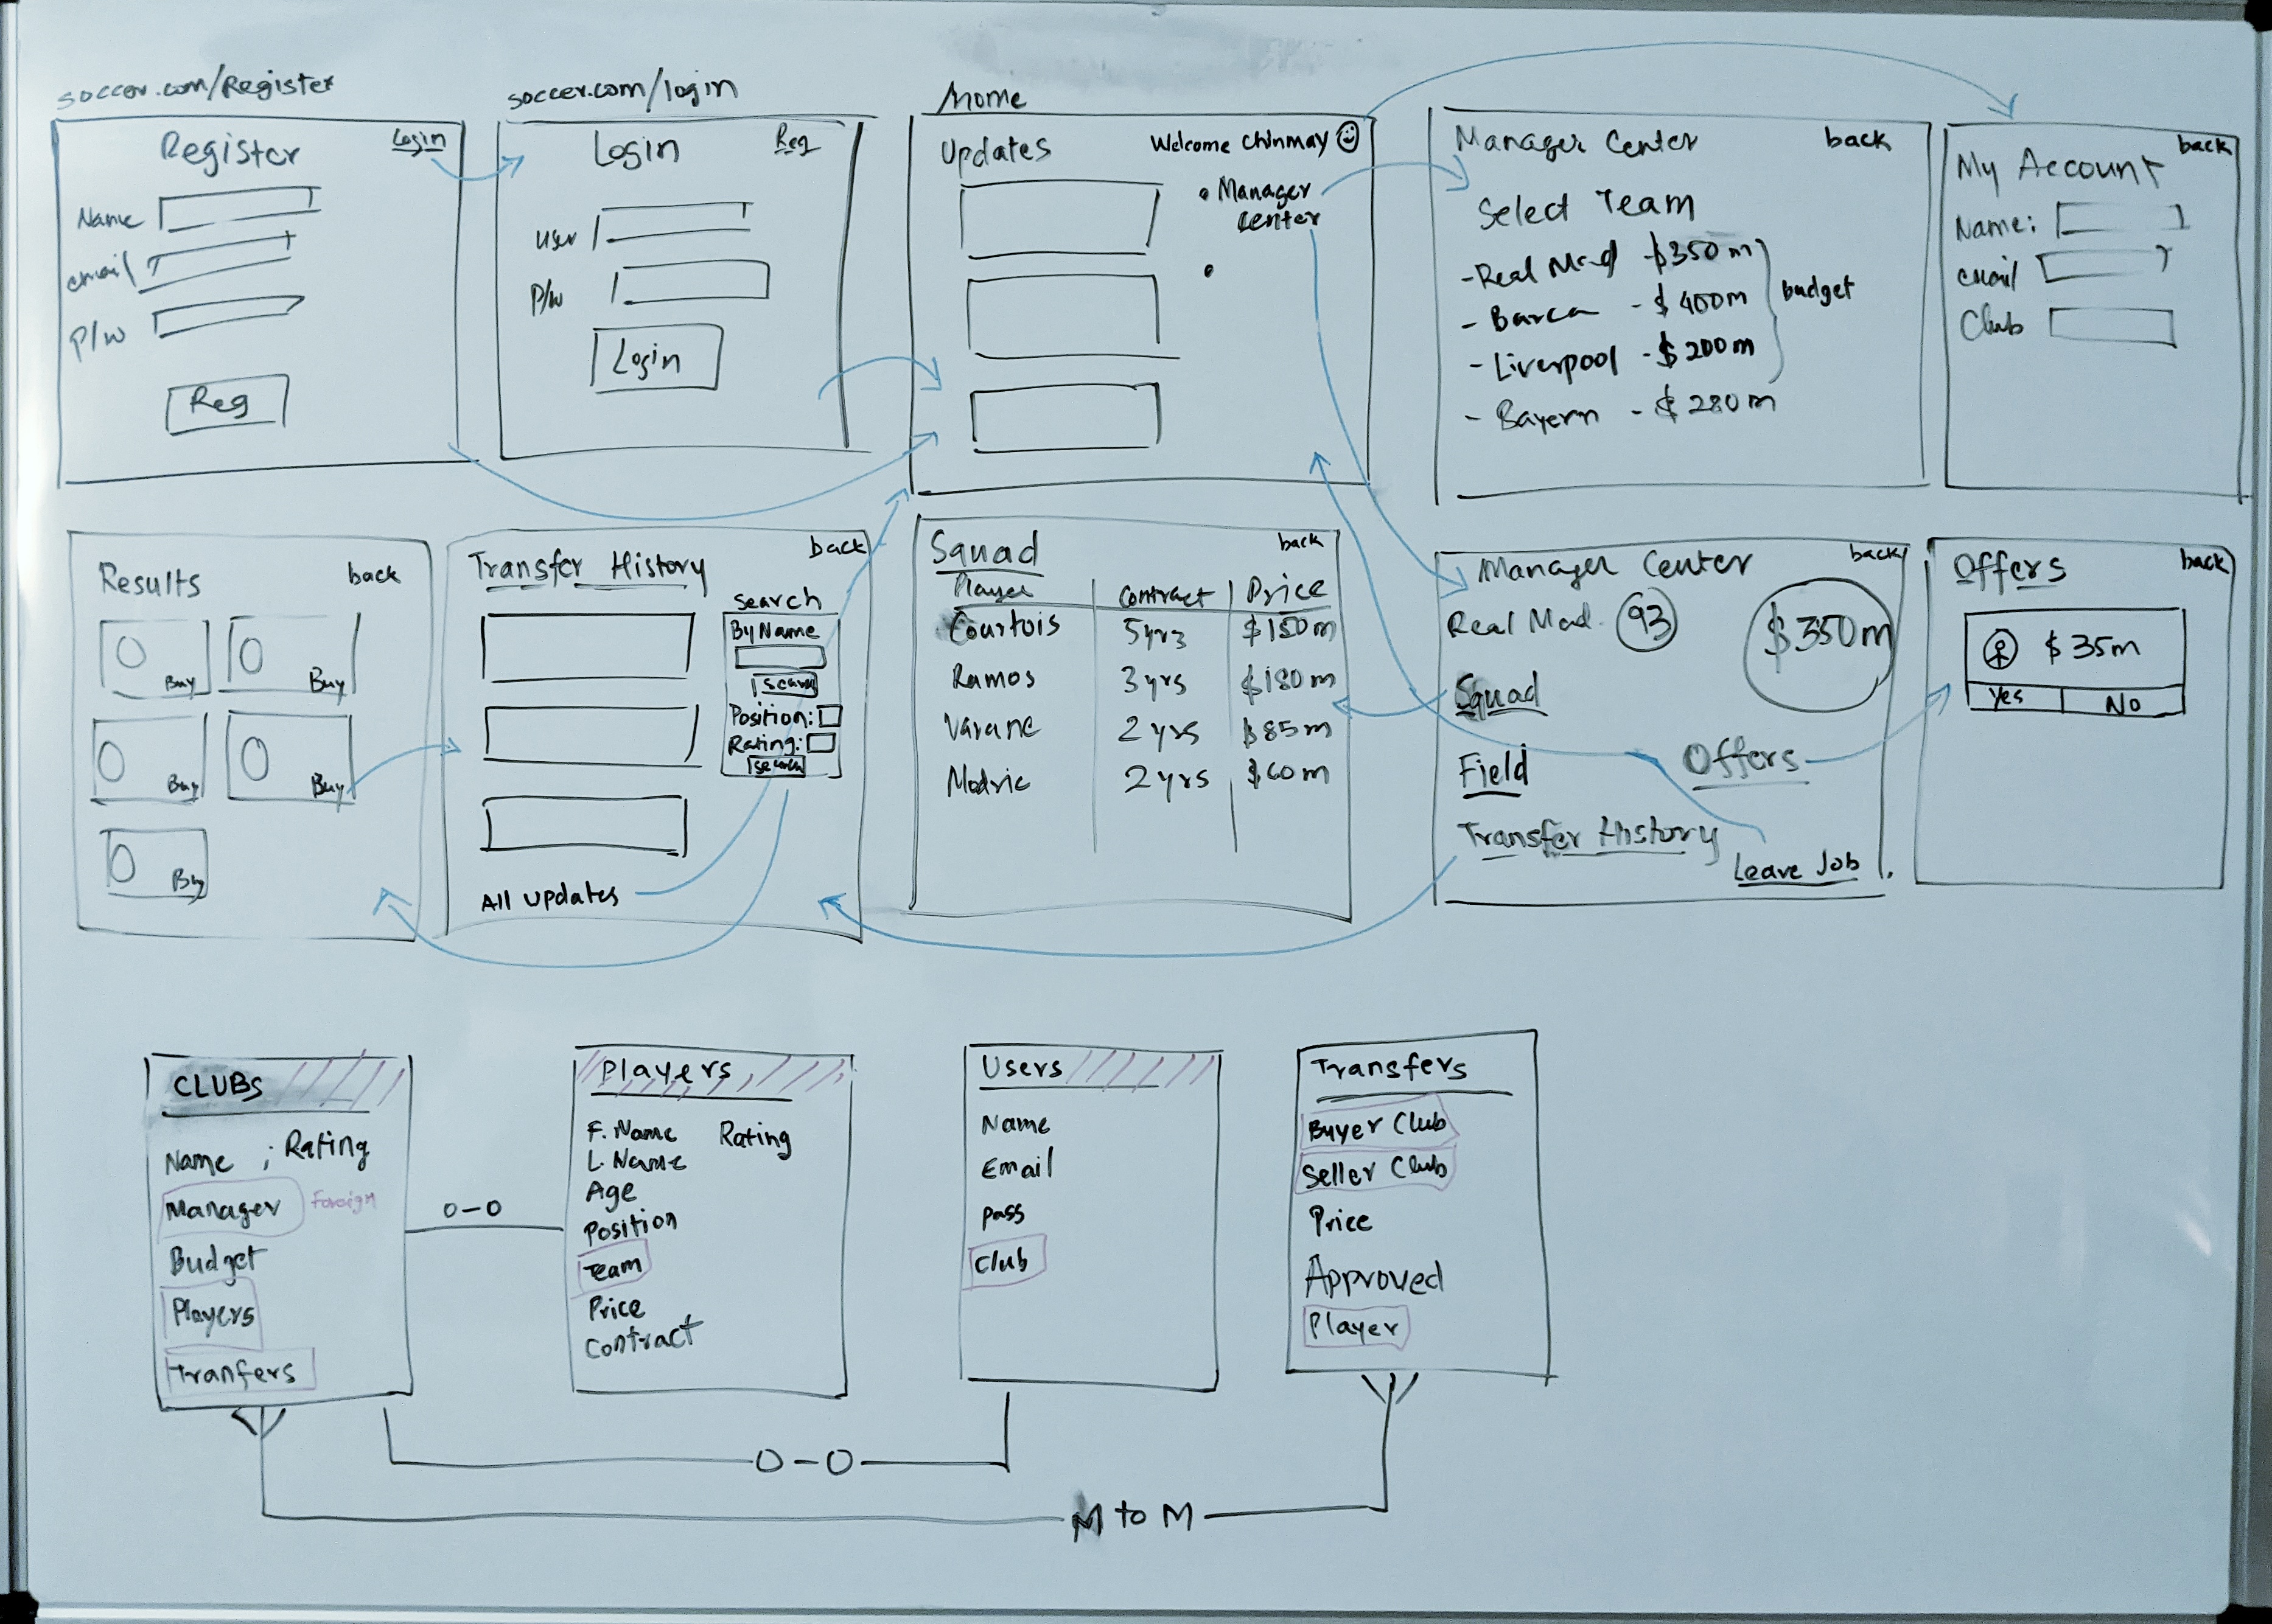 soccer.com/Register
Register
Login
Name
email
P/w
Reg
soccer.com/login
Login
Reg
user
P/w
Login
Home
Updates
Welcome chinmay
• Manager
center
•
Manager Center
back
Select Team
- Real Mad - $350m
- Barca - $400m
- Liverpool - $200m
- Bayern - $280m
budget
My Account
back
Name:
email
Club
Results
back
Buy
Buy
Buy
Buy
Buy
Transfer History
back
search
By Name
search
Position:
Rating:
search
All updates
Squad
back
Player Contract Price
Courtois 5yrs $150m
Ramos 3yrs $180m
Varane 2yrs $85m
Modric 2yrs $60m
Manager Center
back
Real Mad. 93
$350m
Squad
Field
Offers
Transfer History
Leave Job
Offers
back
$35m
Yes No
CLUBS
Name ; Rating
Manager Foreign
Budget
Players
Tranfers
O-O
Players
F. Name Rating
L. Name
Age
Position
Team
Price
Contract
Users
Name
Email
pass
Club
Transfers
Buyer Club
Seller Club
Price
Approved
Player
O-O
M to M